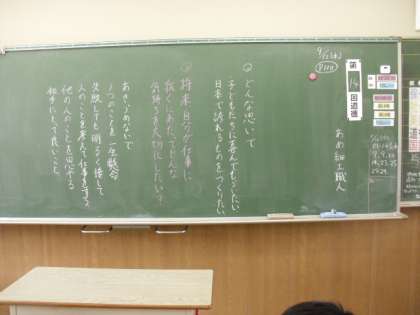 9/12(水)
P110
第14回道徳
あめ細工職人
◎どんな思いで
子どもたちに喜んでもらいたい
日本で誇れるものをつくりたい
◎将来自分が仕事に
就くにあたってどんな
気持ちを大切にしたいか。
あきらめないで
1つのことを一生懸命
失敗しても明るく接して
人のことを考えて仕事をする。
他の人のことを思いやる
相手にとって良いこと。